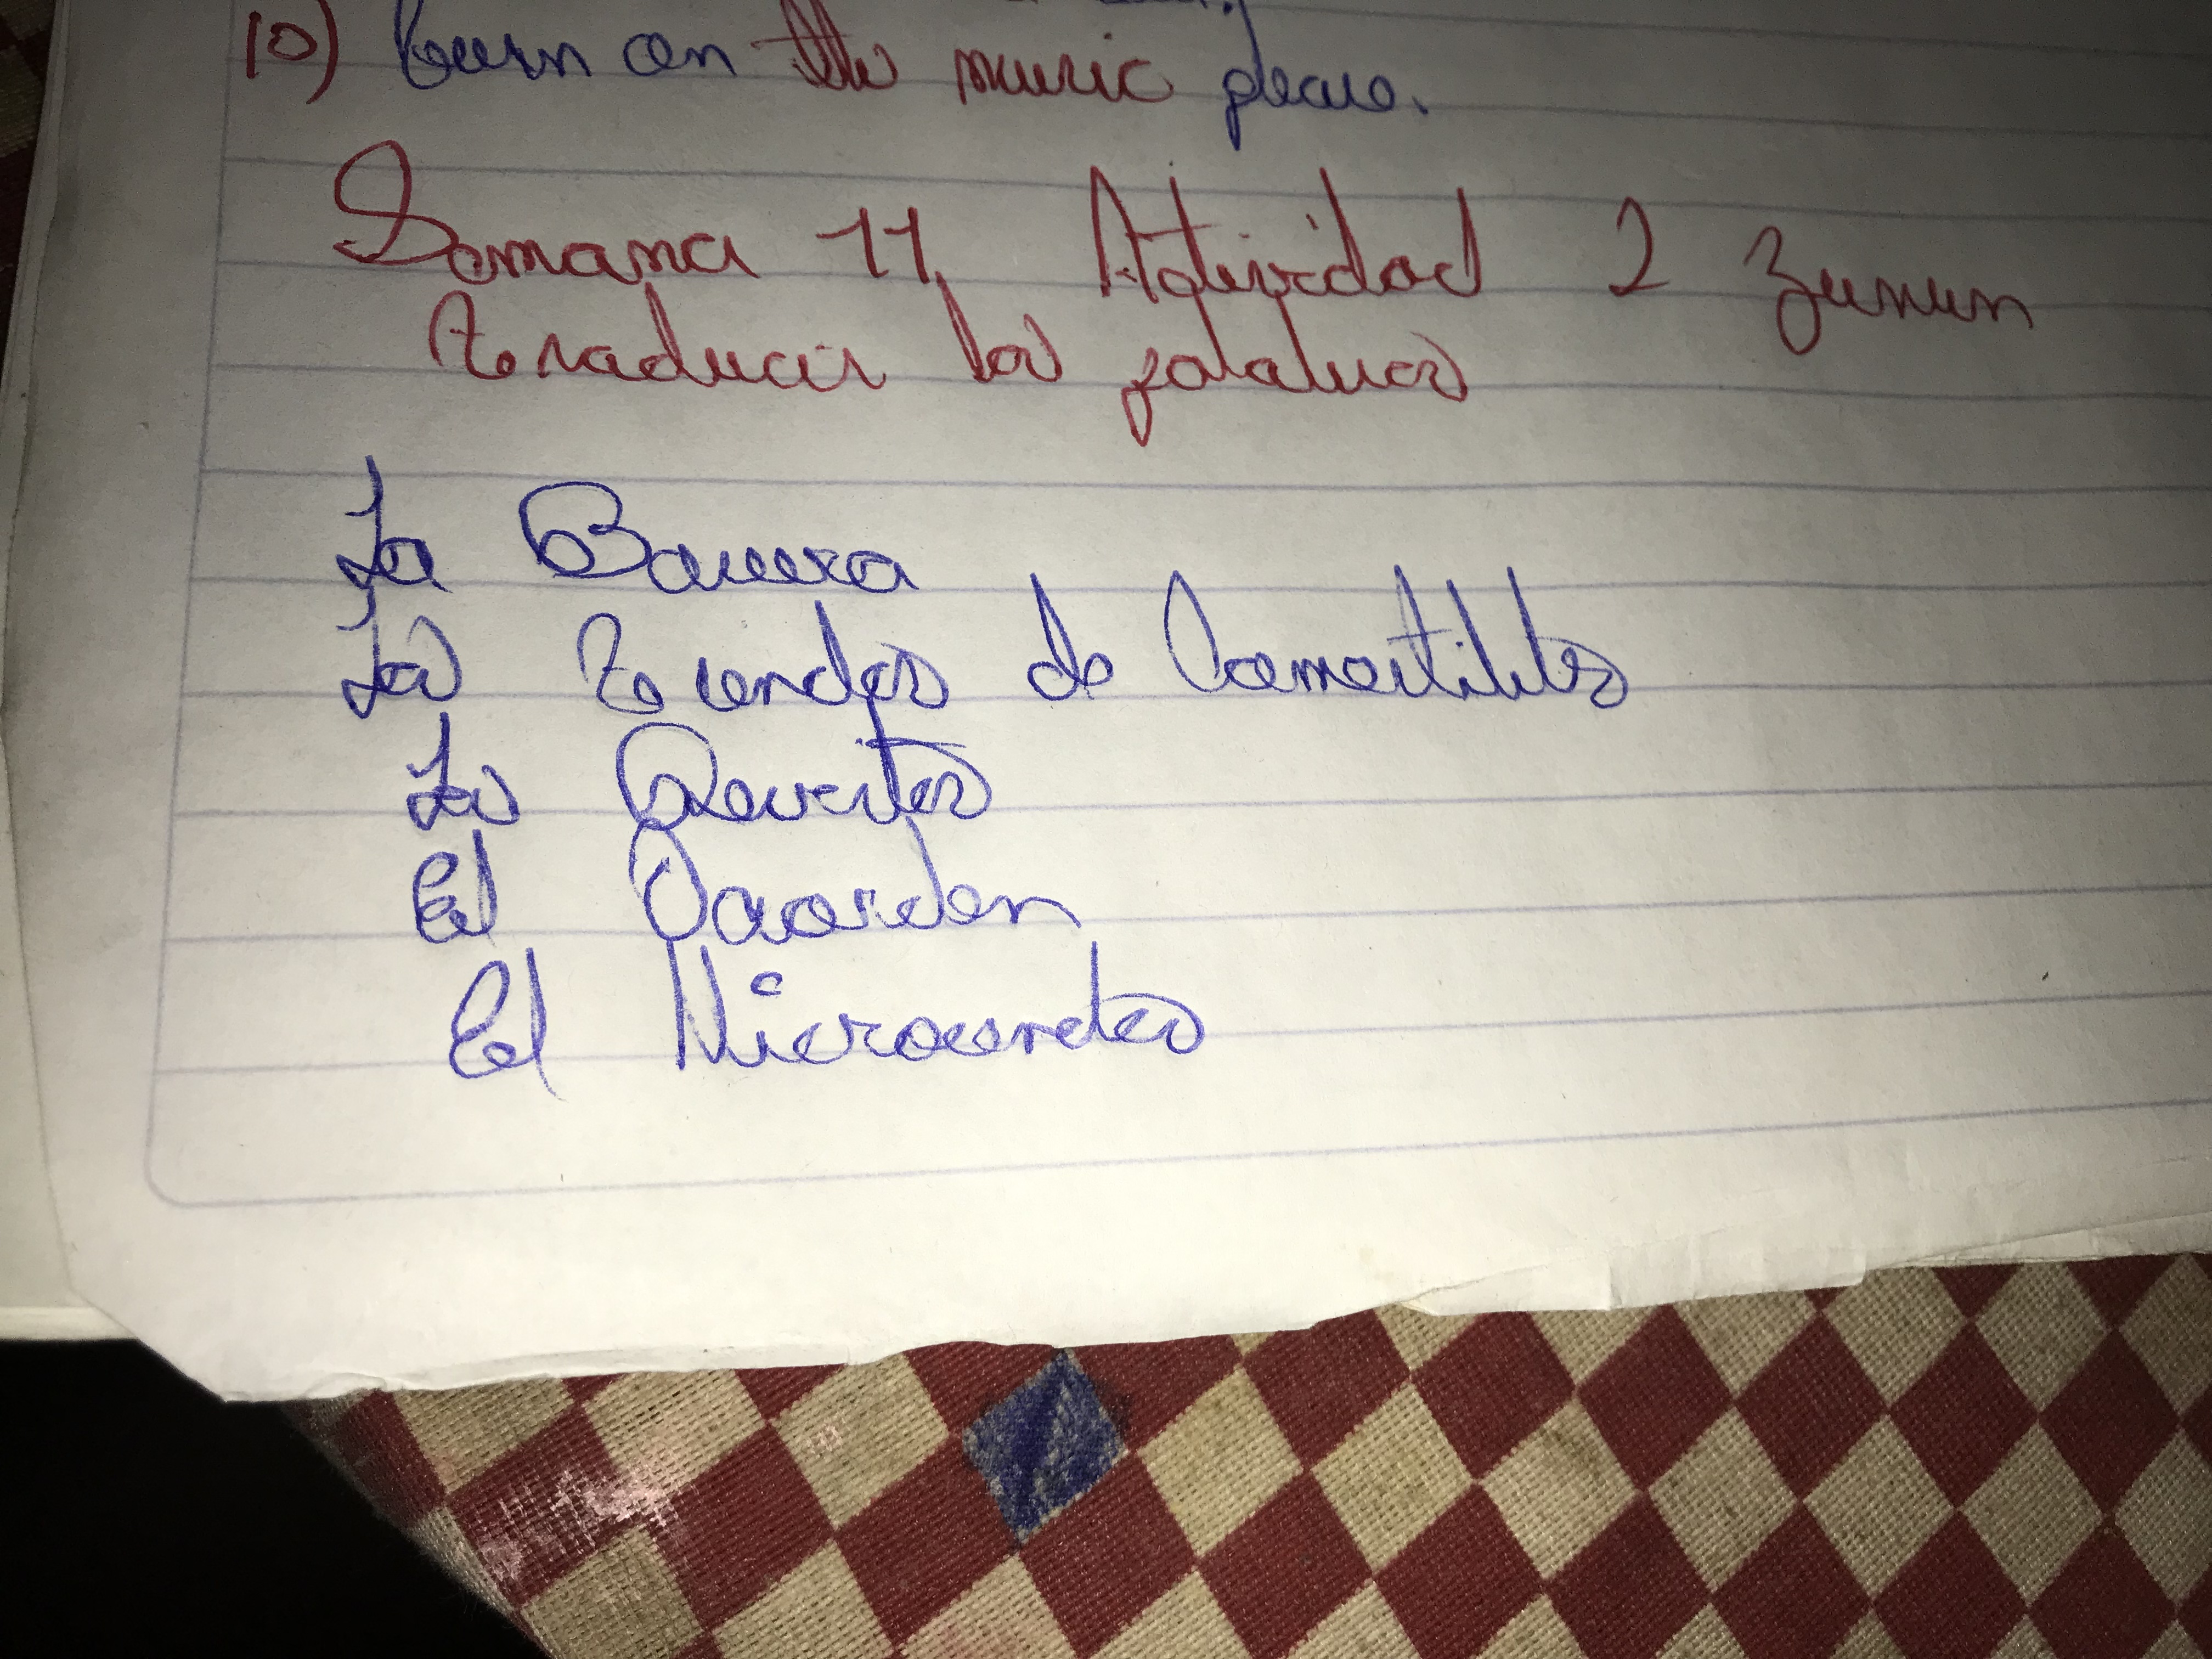 10) turn on the music please.
Semana 11 Actividad 2 Zunun
Traducir las palabras
La Basura
Las tiendas de Comestibles
Las Revistas
El Desorden
El Microondas